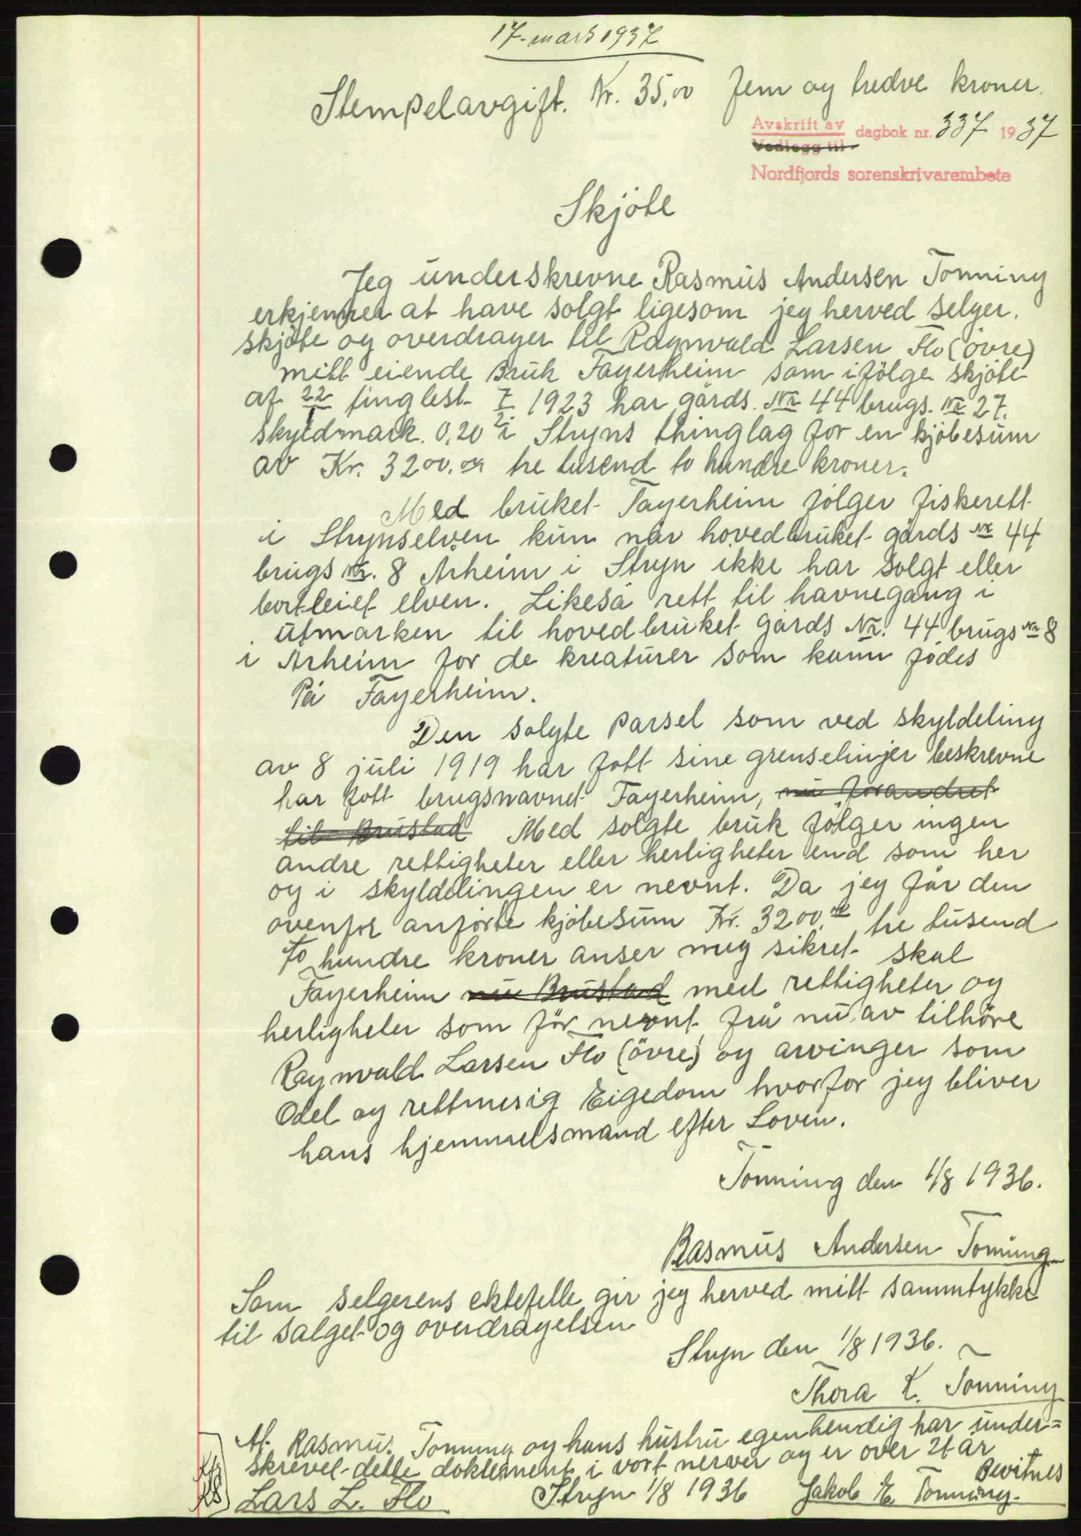 17. mars 1937
Stempelavgift. Kr. 35,00 fem og tredve kroner.
Avskrift av
Vedlegg til
dagbok nr. 337 1937
Nordfjords sorenskrivarembete
Skjöte
Jeg underskrevne Rasmus Andersen Tonning
erkjenner at have solgt ligesom jeg herved selger.
skjöte og overdrager til Ragnvald Larsen Flo (övre)
mitt eiende Bruk Fagerheim som ifölge skjöte
af 22/1 tinglest 7/2 1923 har gårds. Nr. 44 brugs. Nr. 27.
Skyldmark. 0,20 i Stryns thinglag for en kjöbesum
av Kr. 3200,00 tre tusend to hundre kroner.
Med bruket Fagerheim fölger fiskerett
i Strynselven kun når hovedbruket gårds Nr. 44
brugs Nr. 8 Årheim i Stryn ikke har solgt eller
bortleiet elven. Likeså rett til havnegang i
utmarken til hovedbruket gårds Nr. 44 brugs Nr. 8
i Årheim for de kreaturer som kann födes
På Fagerheim.
Den solgte parsel som ved skyldeling
av 8 juli 1919 har fott sine grenselinjer beskrevne
har fott brugsnavnet Fagerheim, nu forandret
til Brustad Med solgte bruk fölger ingen
andre rettigheter eller herligheter end som her
og i skyldelingen er nevnt. Da jeg får den
ovenfor anförte kjöbesum Kr. 3200,00 tre tusend
to hundre kroner anser meg sikret skal
Fagerheim nu Brustad med rettigheter og
herligheter som för nevnt frå nu av tilhöre
Ragnvald Larsen Flo (övre) og arvinger som
Odel og rettmesig Eigedom hvorfor jeg bliver
hans hjemmelsmand efter Loven.
Tonning den 1/8 1936.
Rasmus Andersen Tonning
Som selgerens ektefelle gir jeg herved mitt sammtykke
til salget og overdragelsen
Stryn den 1/8 1936.
Thora K. Tonning
At Rasmus Tonning og hans hustru egenhendig har under=
skrevet dette dokument i vort nerver og er over 21 år
Bevitnes
Lars L. Flo Stryn 1/8 1936 Jakob E. Tonning.